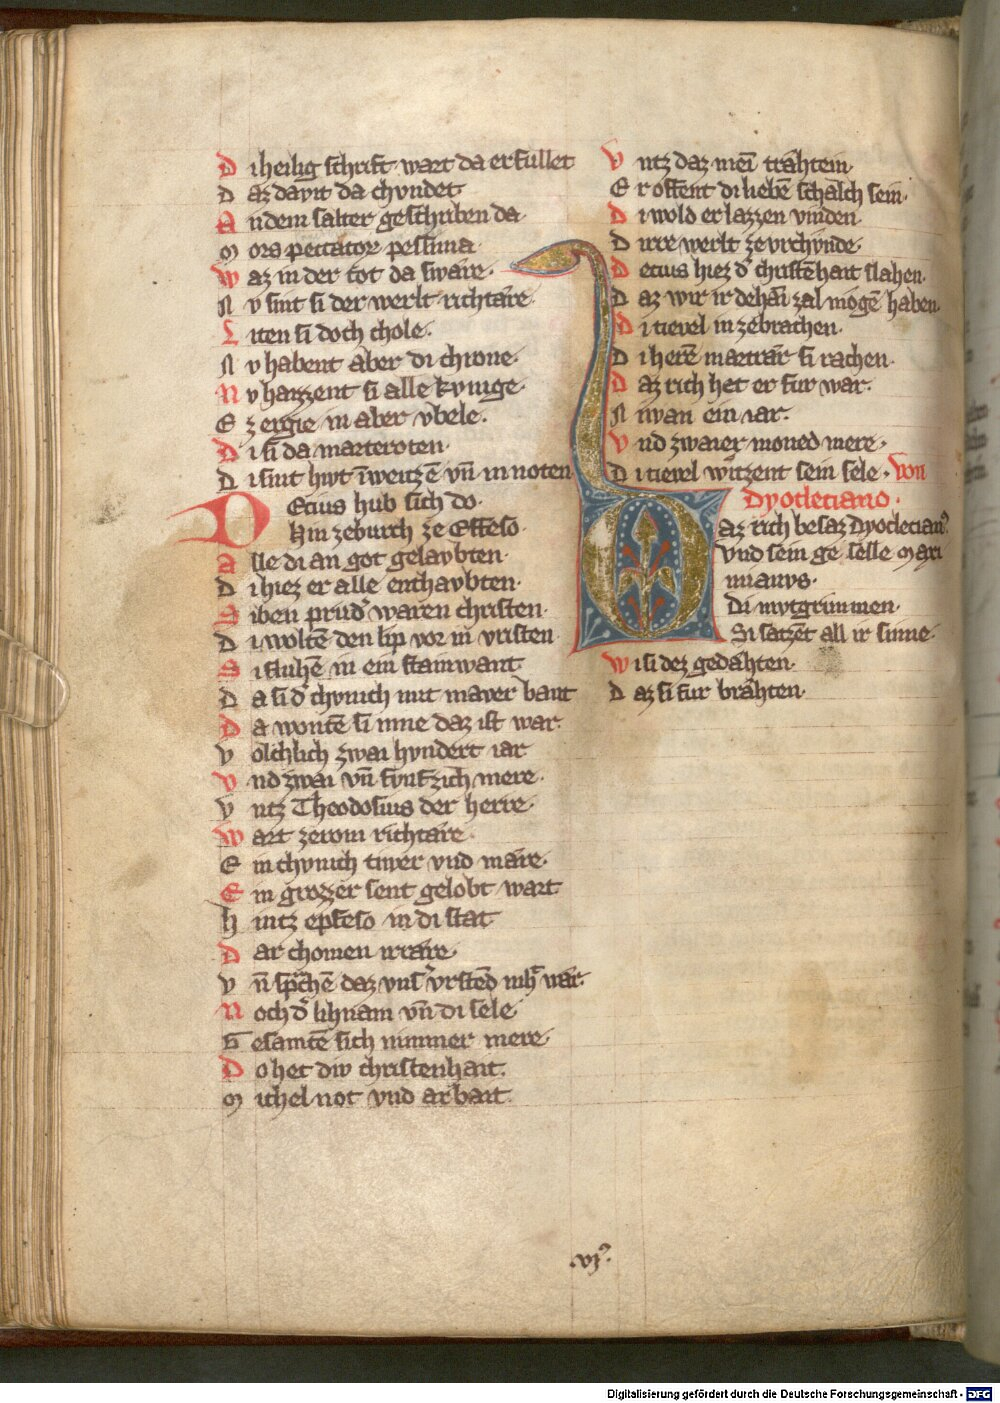 D i heilig schrift wart da erfullet
D az dayit da chvndet
A n dem salter geschriben da
M ors peccator pessima
W az in der tot da sware
N v sint si der werlt richtare
L iten si doch chole
N v habent aber di chrone
N v haizzent si alle kvnige
E z ergie in aber vbele
D i si da marteroten
D i sint hivt in weitzē vñ in noten
D Ecius hub sich do
Hin zeburch ze Effeso
A lle di an got gelavbten
D i hiez er alle enthavbten
S iben prud͛ waren christen
D i woltē den lip vor im vristen
S i fluhē in ein stainwant
D a si d͛ chvnich mit maver bant
D a wontē si inne daz ist war
V olchlich zwai hvndert iar
V nd zwai vñ fvnfzich mere
V ntz Theodosius der herre
W art zerom richtare
E in chvnich tiwer vnd mare
E in grozzer sent gelobt wart
H intz epheso in di stat
D ar chomen irrare
V ñ sprachē daz vns͛ vrstēd niht war
N och d͛ lihnam vñ di sele
G esamtē sich nimmer mere
D o het div christenhait
M ichel not vnd arbait
V ntz daz mei trähtein
E r offent di liebē schalch sein
D i wold er lazzen vinden
D irre werlt ze vrchvnde
D ecius hiez d͛ christēhait slahen
D az wir ir dehaī zal mogē haben
D i tievel in zebrachen
D i herē marträr si rachen
D az rich het er fur war
N iwan ein iar
V nd zwaier moned mere
D i tievel witzent sein sele. von
Dyocleciano.
D az rich besaz Dyoclecian9
Vnd sein geselle Maxi
mianvs.
Di mvtgrimmen
Si satzēt all ir sinne
W i si dez gedähten
D az si fur brähten
.vj9.
Digitalisierung gefördert durch die Deutsche Forschungsgemeinschaft - DFG